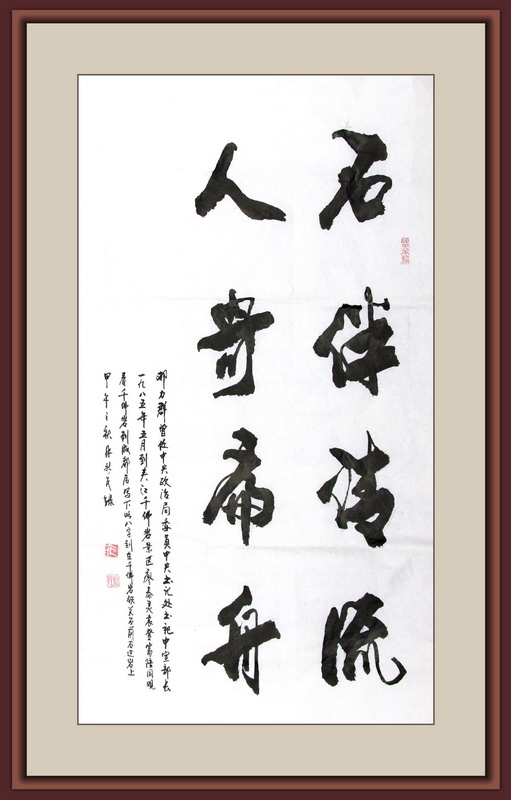 石伴清流
人寄扁舟
邓力群曾任中共政治局委员中共书记处书记中宣部长
一九八五年五月到夹江千佛岩景区陪同观
看千佛岩到成都后写下此八字刻在千佛岩铁关石前石边岩上
甲午之秋